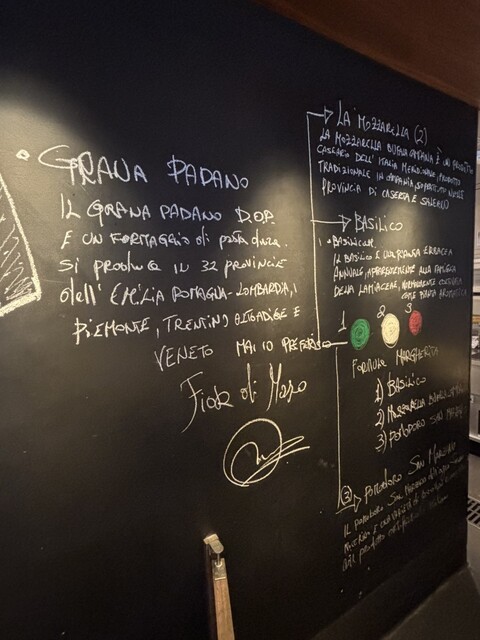 GRANA PADANO
IL GRANA PADANO D.O.P.
E UN FORMAGGIO di pasta dura.
Si produce IN 32 PROVINCIE
dell' EMILIA ROMAGNA-LOMBARDIA,
PIEMONTE, TRENTINO ALTOADIGE E
VENETO MA IO PREFERISCO
Fiore di
LA MOZZARELLA (2)
LA MOZZARELLA BUFALA CAMPANA È UN PRODOTTO
CASEARIO DELL' ITALIA MERIDIONALE, PRODOTTO
TRADIZIONALE IN CAMPANIA, SOPRATTUTTO NELLE
PROVINCIA DI CASERTA E SALERNO
BASILICO
1 •
IL BASILICO E UNA PIANTA ERBACEA
ANNUALE, APPARTENENTE ALLA FAMIGLIA
DELLA LAMIACEAE, NORMALMENTE COLTIVATA
COME PIANTA AROMATICA
1 2 3
FORMULA MARGHERITA
1) BASILICO
2) MOZZARELLA BUFALA
3) POMODORO SAN
(3) POMODORO SAN MARZANO
IL POMODORO SAN MARZANO